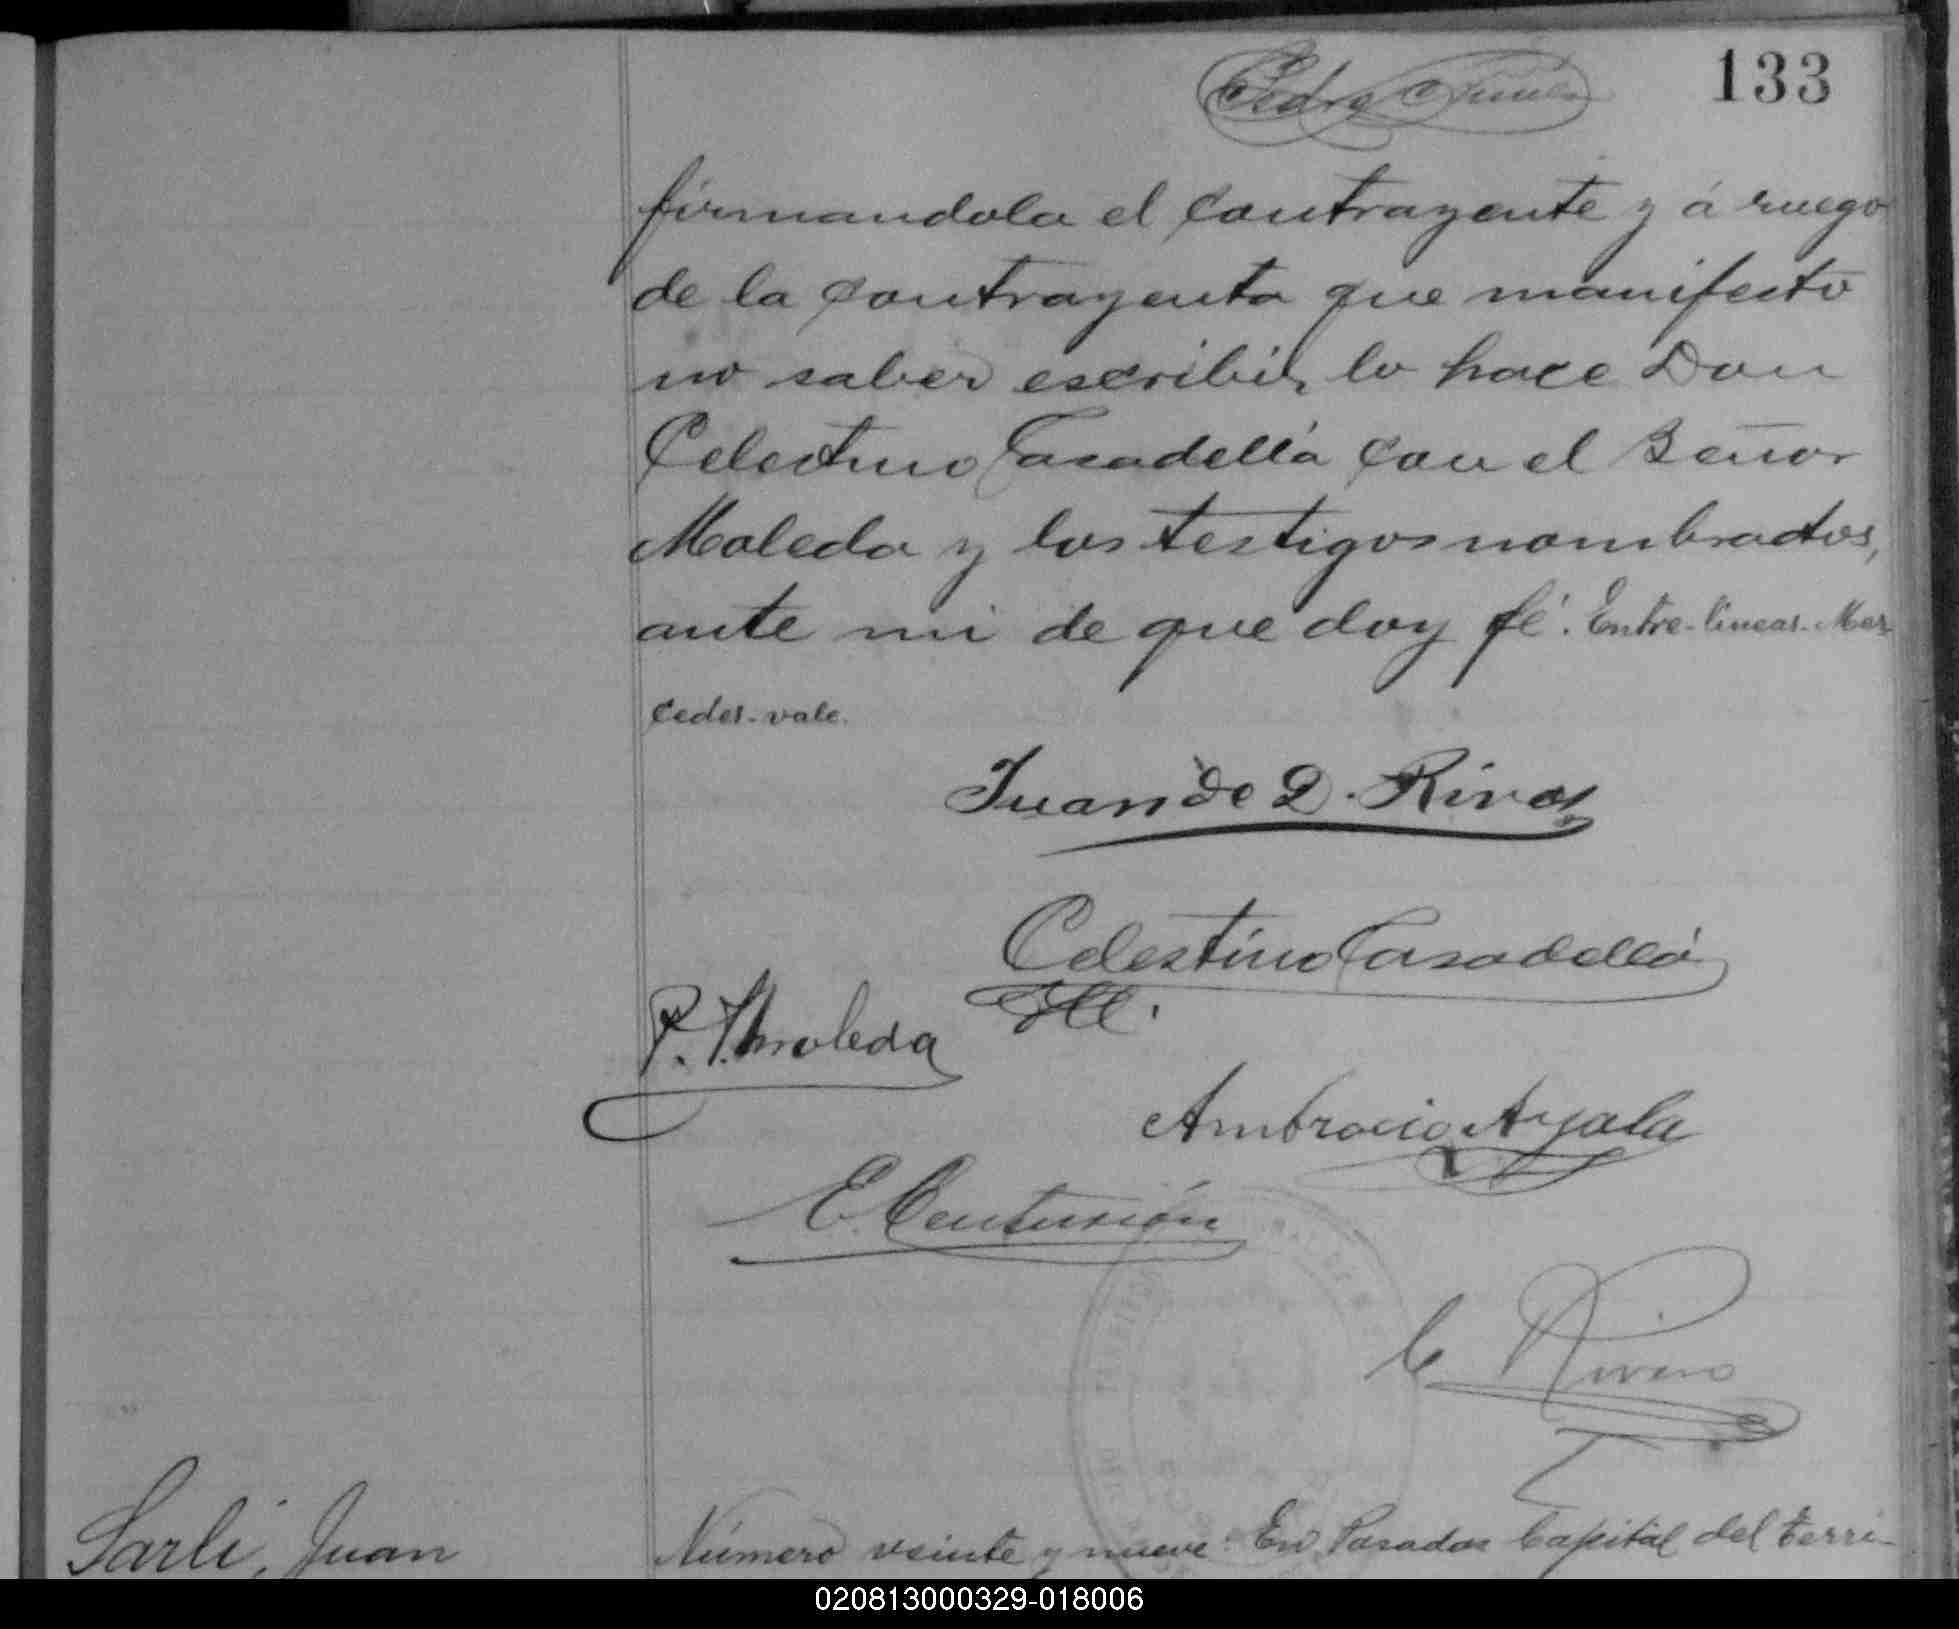 Pedro
133
firmandola el contrayente y á ruego
de la contrayenta que manifesto
no saber escribir lo hace Don
Celestino Casadellá con el Señor
Moleda y los testigos nombrados,
ante mi de que doy fé. Entre-lineas-Mer
cedes-vale.
Juan de D. Rivas
Celestino Casadellá
P. Moleda
Ambrocio Ayala
E. Centurión
C Rivero
Sarli, Juan
Número veinte y nueve: En Posadas Capital del terri-
020813000329-018006